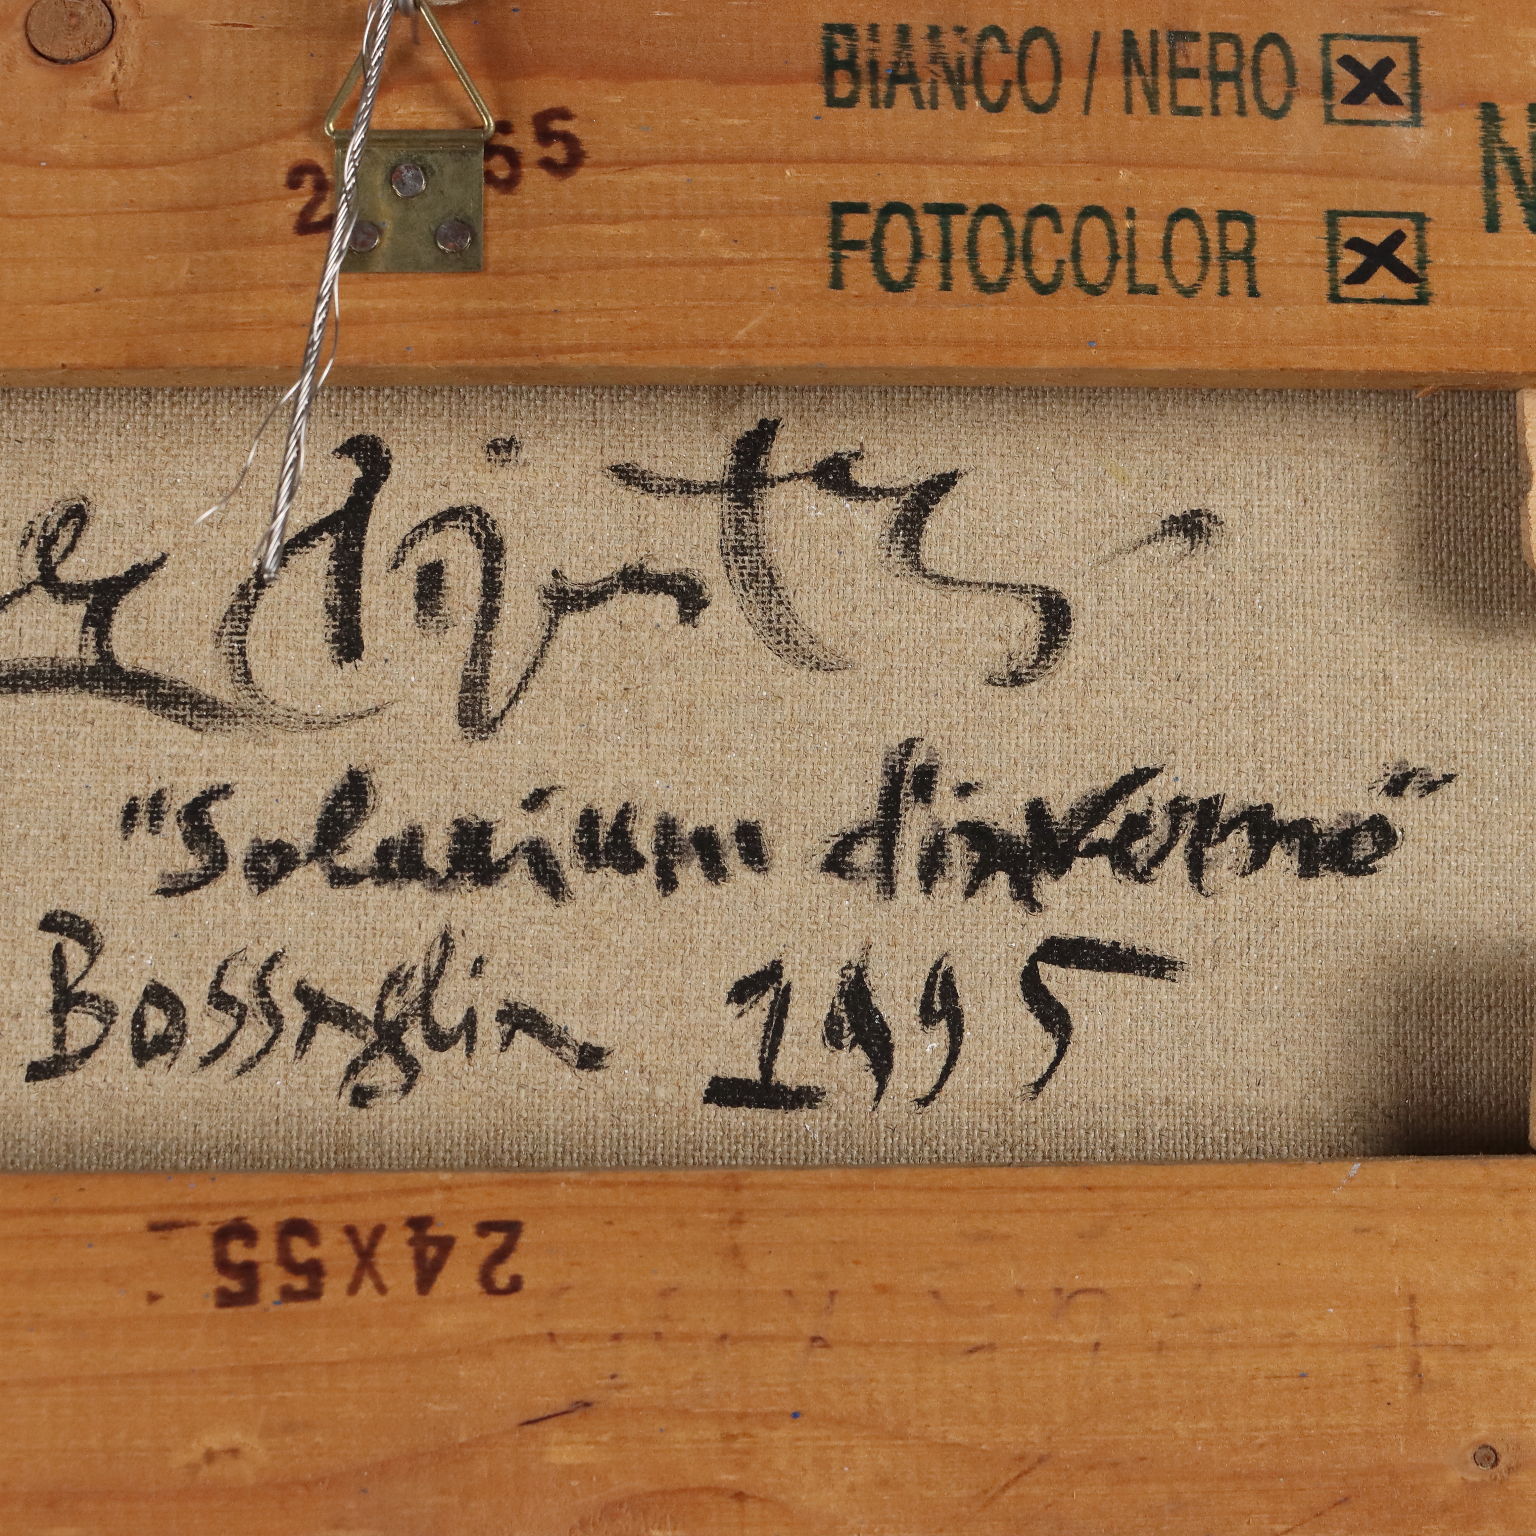 BIANCO / NERO
FOTOCOLOR
"Solarium d'inverno"
Bossaglia 1995
24X55